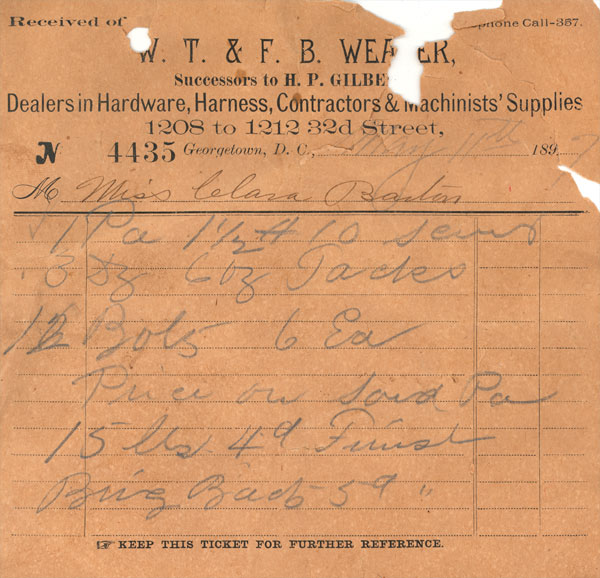 Received of
phone Call-357.
W. T. & F. B. WEAVER,
Successors to H. P. GILBE
Dealers in Hardware, Harness, Contractors & Machinists' Supplies
1208 to 1212 32d Street,
N 4435 Georgetown, D. C., May 189 7
M Miss Clara Barton
1 Pa 1 1/2 # 10
3 Dz 6 oz Tacks
12 Bolts 6 Ea
Price on Pa
15 lbs 4d
5d "
☞ KEEP THIS TICKET FOR FURTHER REFERENCE.